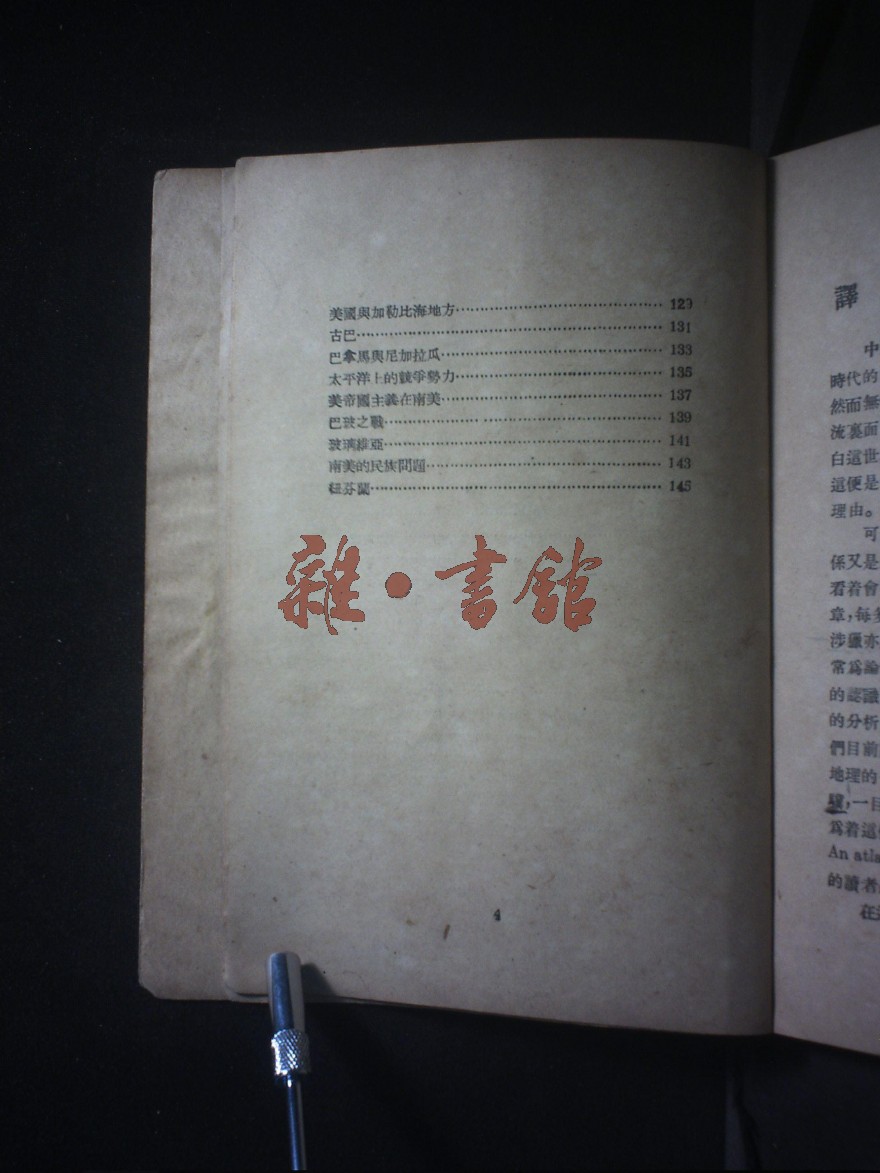 美國與加勒比海地方…………………………… 129
古巴…………………………………………… 131
巴拿馬與尼加拉瓜……………………………… 133
太平洋上的競爭勢力…………………………… 135
美帝國主義在南美……………………………… 137
巴玻之戰………………………………………… 139
玻璃維亞………………………………………… 141
南美的民族問題………………………………… 143
紐芬蘭…………………………………………… 145
雜·書館
4
譯
中
時代的
然而無
流裏面
白這世
這便是
理由。
可
係又是
看着會
章,每
涉獵亦
常爲論
的認識
的分析
們目前
地理的
,一目
爲着這
An atla
的讀者
在